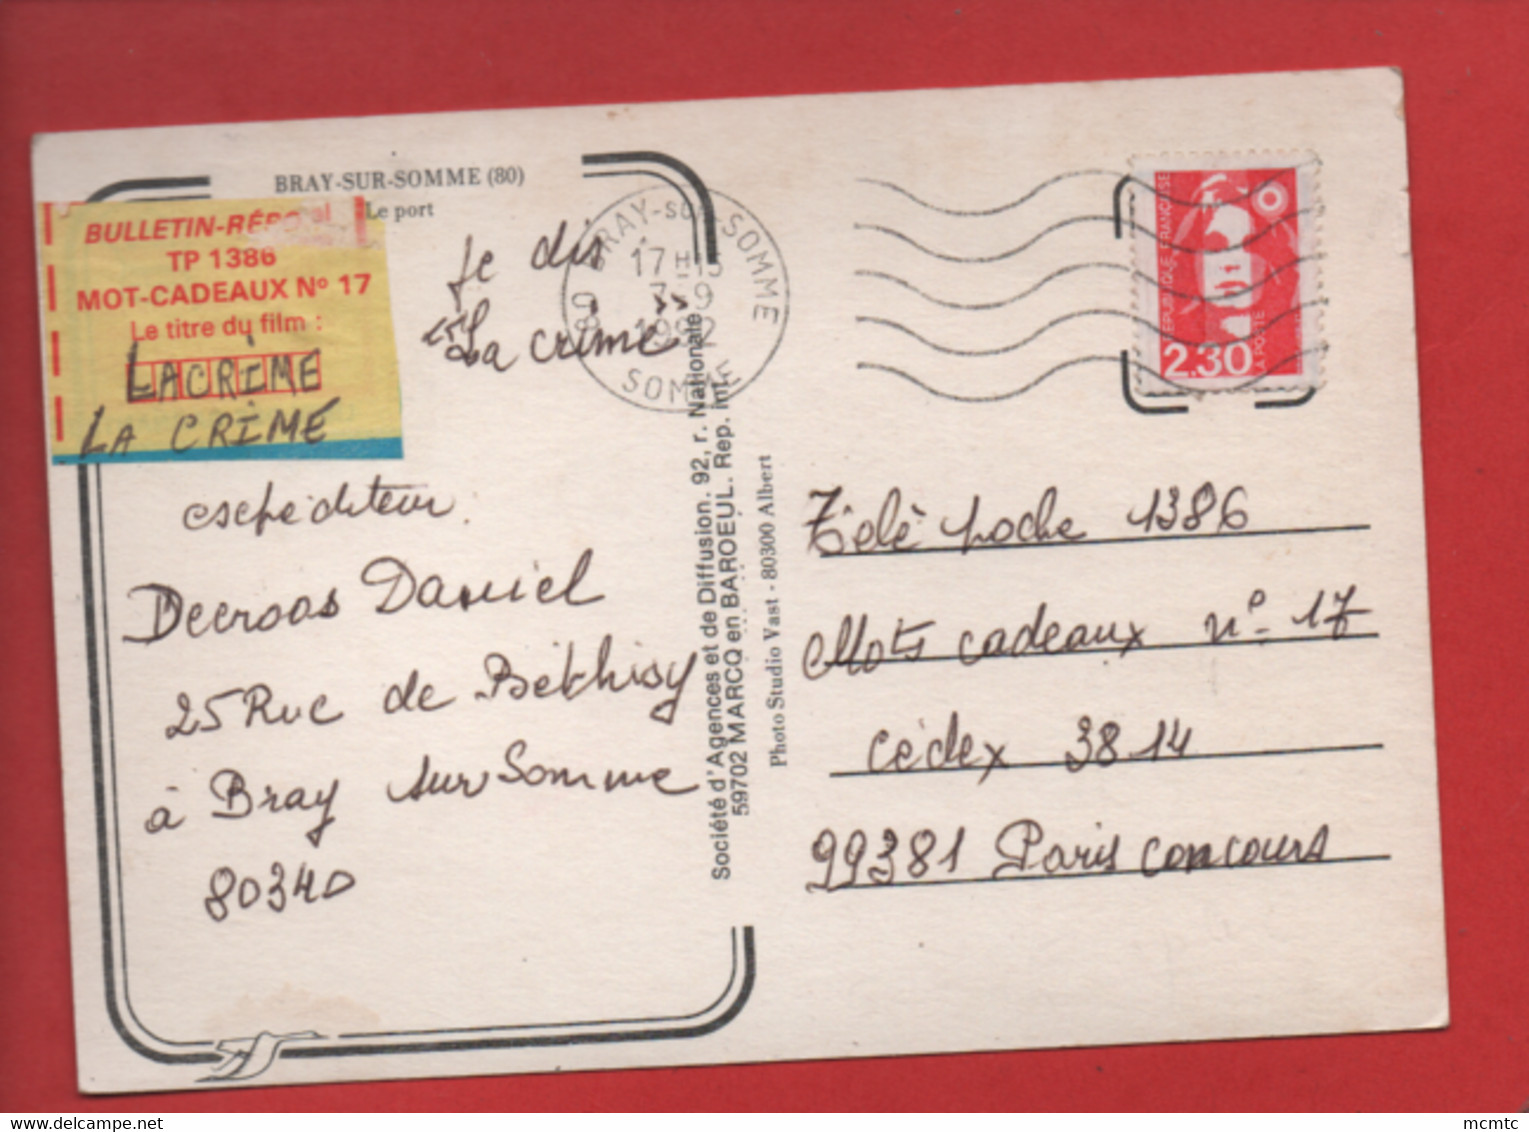 BRAY-SUR-SOMME (80)
Le port
BULLETIN-RÉPO
TP 1386
MOT-CADEAUX Nº 17
Le titre du film :
LACRIME
LA CRIME
Je dis
"La crime"
BRAY-SUR-SOMME
17 H
7-9
1992
80
SOMME
RÉPUBLIQUE FRANÇAISE
2,30
LA POSTE
eschéditeur
Decroos Daniel
25 Rue de Béthisy
à Bray sur Somme
80340
Société d'Agences et de Diffusion. 92, r. Nationale
59702 MARCQ en BAROEUL. Rep. int.
Photo Studio Vast - 80300 Albert
Télé poche 1386
Mots cadeaux nº 17
cédex 3814
99381 Paris concours
mcmtc